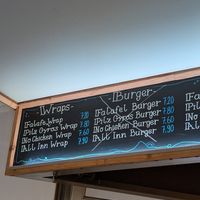 Wraps
Falafel Wrap 7.20
Pilz Gyros Wrap 7.80
No Chicken Wrap 7.60
All Inn Wrap 7.90
Burger
Falafel Burger 7.20
Pilz Gyros Burger 7.80
No Chicken Burger 7.60
All Inn Burger 7.90